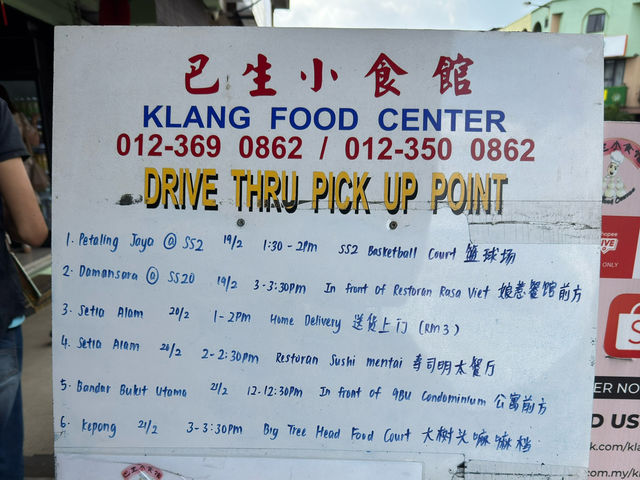 巴生小食館
KLANG FOOD CENTER
012-369 0862 / 012-350 0862
DRIVE THRU PICK UP POINT
1. Petaling Jaya @ SS2 19/2 1:30 - 2pm SS2 Basketball Court 篮球场
2. Damansara @ SS20 19/2 3-3:30pm In front of Restoran Rasa Viet 娘惹餐馆前方
3. Setia Alam 20/2 1-2PM Home Delivery 送货上门 (RM3)
4. Setia Alam 20/2 2-2:30pm Restoran Sushi mentai 寿司明太餐厅
5. Bandar Bukit Utama 21/2 12-12:30pm In front of 9BU Condominium 公寓前方
6. Kepong 21/2 3-3:30pm Big Tree Head Food Court 大树头嘛嘛档
巴生小食館
Shopee
IVE
ONLY
S
ER NO
D US
k.com/kla
om.my/k